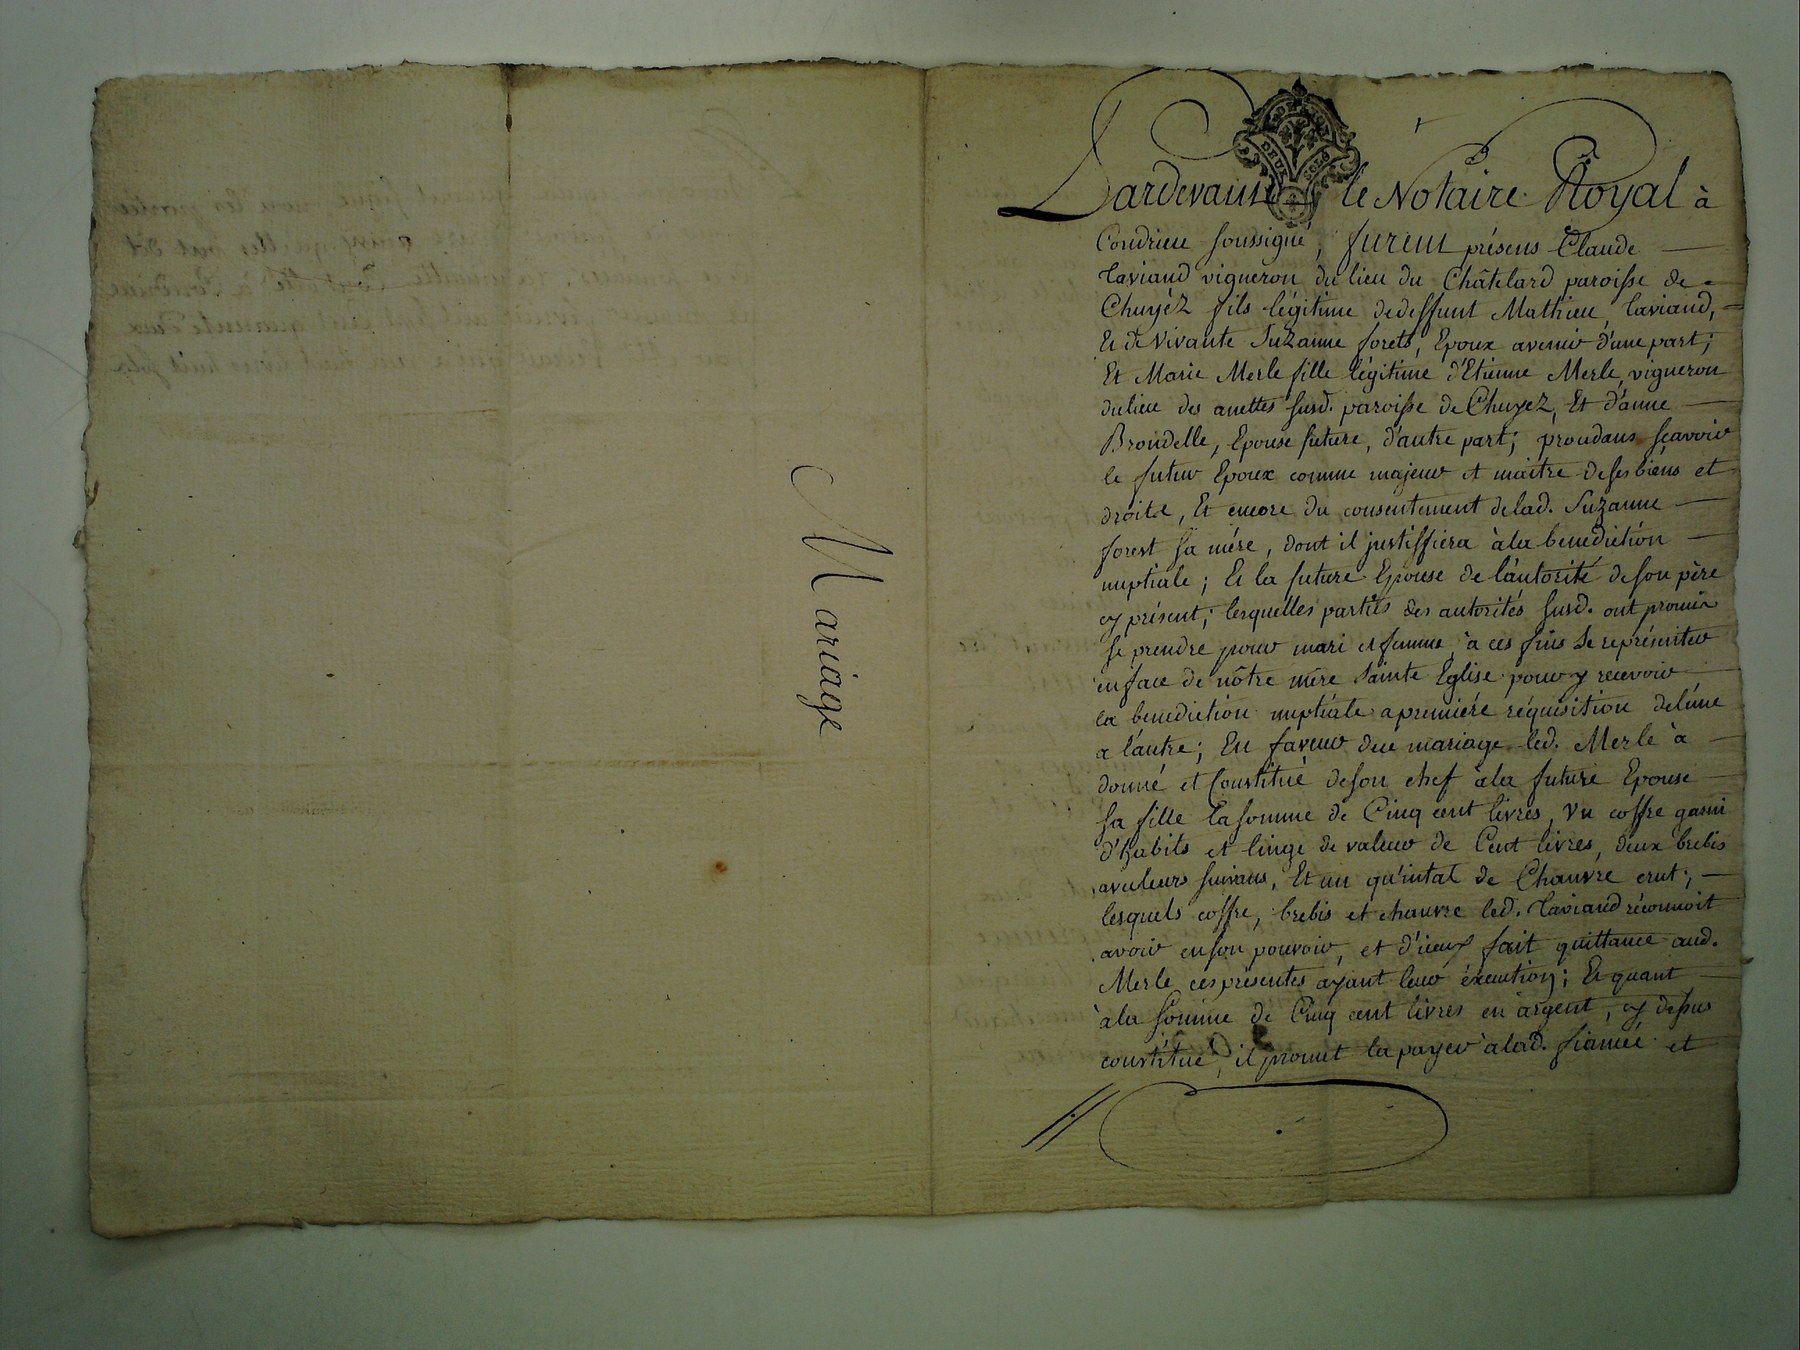 Mariage
Pardevant le Notaire Royal à
Condrieu soussigné, furent présens Claude
Taviand vigneron du lieu du Châtelard paroisse de
Chuyéz fils légitime de deffunt Mathieu, Taviand,
Et de vivante Suzanne forets, Epoux avenir d'une part;
Et Marie Merle fille légitime d'Etienne Merle, vigneron
du lieu des anettes susd. paroisse de Chuyez, Et d'anne
Brondelle, Epouse future, d'autre part; procédans sçavoir
le futur Epoux comme majeur et maitre de ses biens et
droits, Et encore du consentement de lad. Suzanne
forest sa mére, dont il justiffiera à la benediction
nuptiale; Et la future Epouse de l'autorité de son père
cy présent; lesquelles parties des autorités susd. ont promis
se prendre pour mari et femme, à ces fins se représenter
en face de nôtre mère Sainte Eglise pour y recevoir
la benediction nuptiale a premiére réquisition de l'une
a l'autre; En faveur du mariage led. Merle à
donné et Constitué de son chef à la future Epouse
sa fille la somme de Cinq cent livres, Un coffre garni
d'habits et linge de valeur de Cent livres, deux brebis
avec leurs suivans, Et un quintal de Chanvre crut;
lesquels coffre, brebis et chanvre led. Taviand réconnoit
avoir en son pouvoir, et d'iceux fait quittance aud.
Merle ces présentes ayant leur éxecution; Et quant
à la somme de Cinq cent livres en argent, cy dessus
constitué, il promet la payer à lad. fiancée et